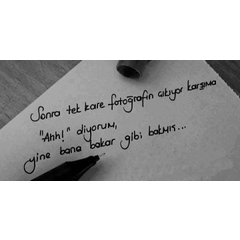 Sonra tek kare fotoğrafın çıkıyor karşıma
"Ahh!" diyorum,
yine bana bakar gibi bakmış...